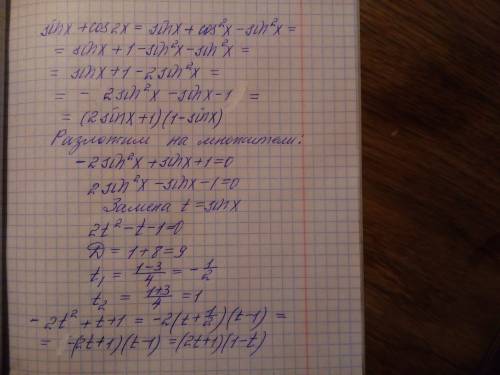 sinx + cos2x = sinx + cos²x - sin²x =
= sinx + 1 - sin²x - sin²x =
= sinx + 1 - 2sin²x =
= - 2sin²x - sinx - 1 =
= (2sinx + 1)(1 - sinx)
Разложим на множители:
-2sin²x + sinx + 1 = 0
2sin²x - sinx - 1 = 0
Замена t = sinx
2t² - t - 1 = 0
D = 1 + 8 = 9
t₁ = (1-3)/4 = -1/2
t₂ = (1+3)/4 = 1
- 2t² + t + 1 = -2(t + 1/2)(t - 1) =
= -(2t + 1)(t - 1) = (2t + 1)(1 - t)